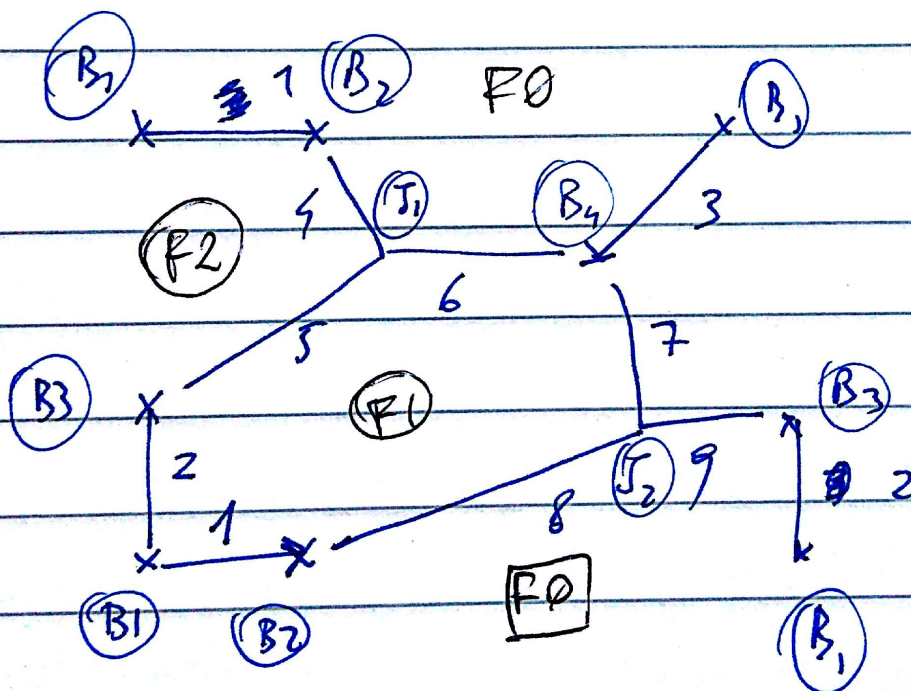 B1 1 B2 F0 B1
4 J1 B4 3
F2
6
5 7
B3 F1 B3
2 J2 9 2
1 8
F0
B1 B2 B1